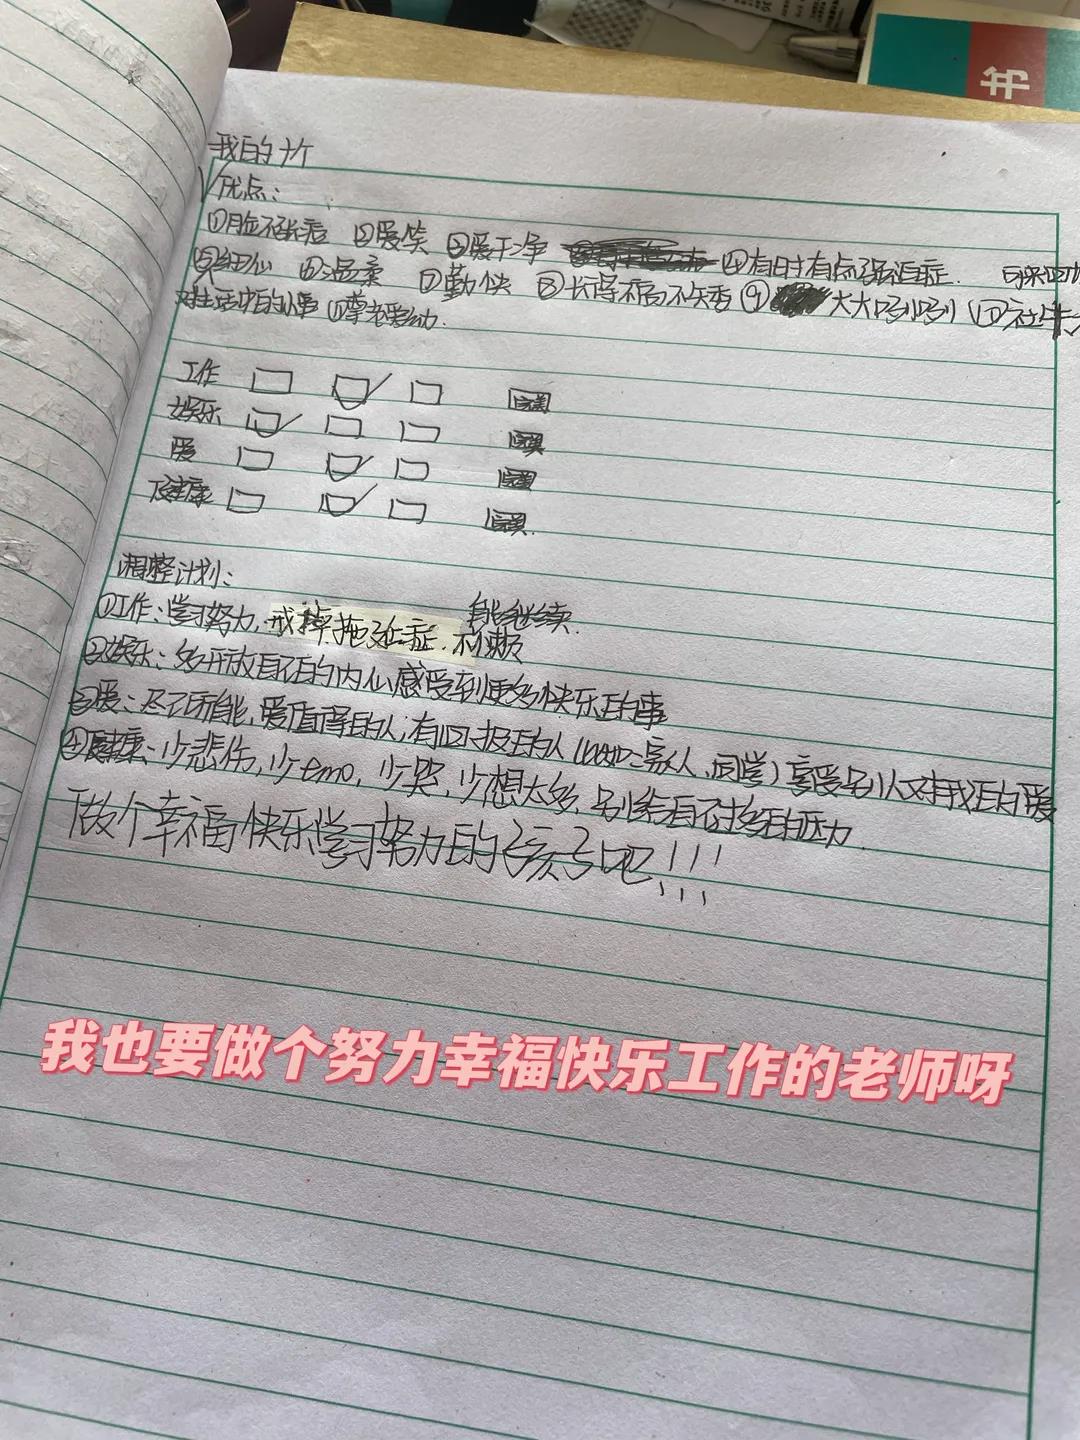 我的十个
优点：
①脸不长痘 ②爱笑 ③爱干净 ④有时有点强迫症.
⑤细心 ⑥温柔 ⑦勤快 ⑧长得不高不矮 ⑨大大咧咧 ⑩社牛
对生活中的小事 ⑪尊老爱幼.
工作 完美
娱乐 完美
爱 完美
健康 完美.
调整计划：
①工作：学习努力，戒掉拖延症. 不烦 能继续.
②娱乐：多开放自己的内心感受到更多快乐的事
③爱：尽己所能，爱值得的人，有回报的人（比如：家人，同学）享受别人对我的爱
④健康：少悲伤，少emo，少哭，少想太多，别给自己太多的压力.
做个幸福快乐学习努力的孩子吧！！！
我也要做个努力幸福快乐工作的老师呀